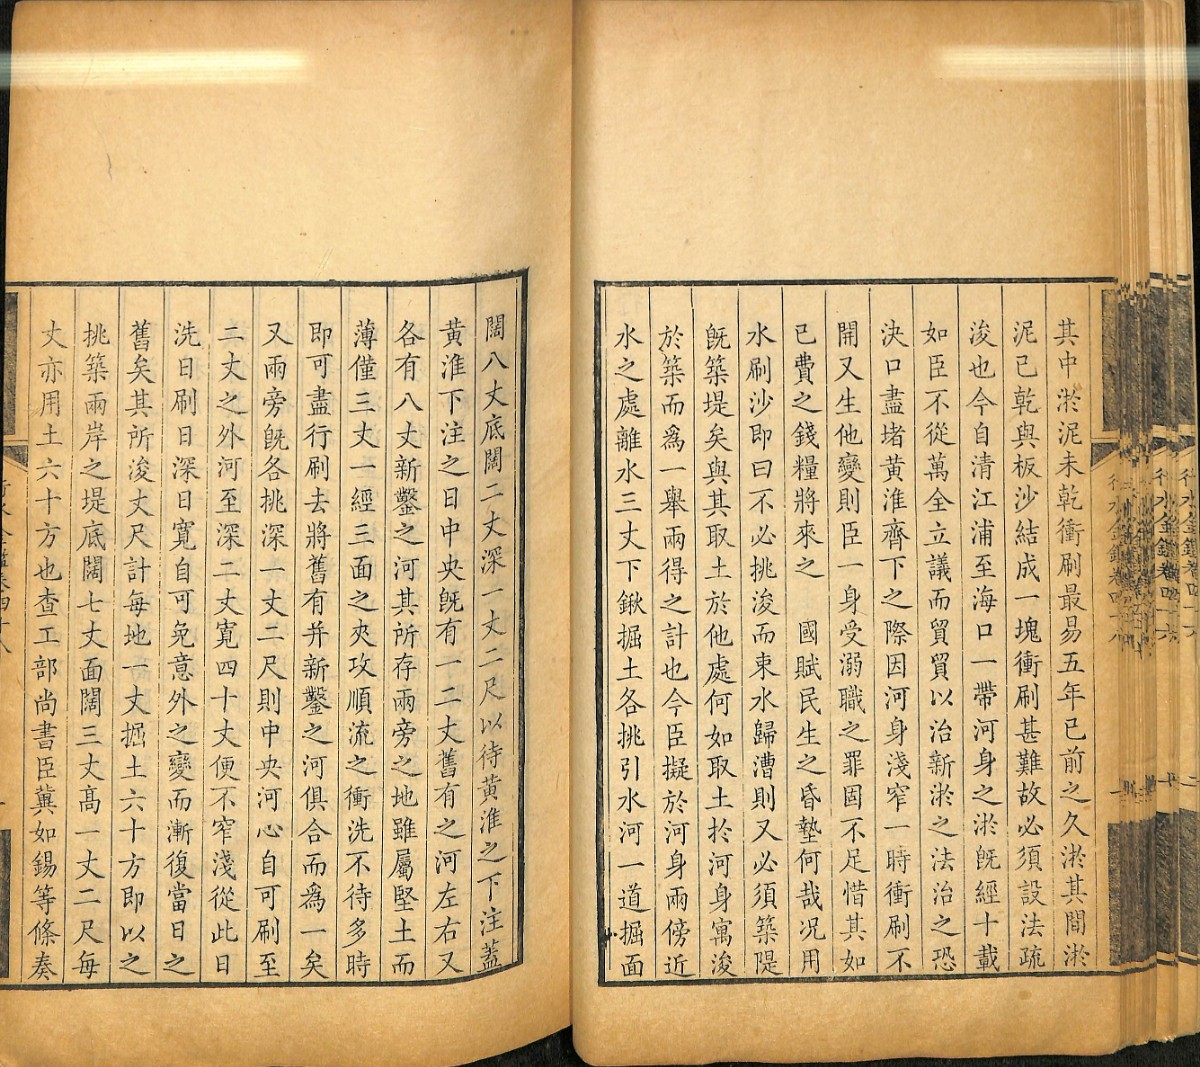 其中淤泥未乾衝刷最易五年已前之久淤其間淤
泥已乾與板沙結成一塊衝刷甚難故必須設法疏
浚也今自清江浦至海口一帶河身之淤旣經十載
如臣不從萬全立議而貿貿以治新淤之法治之恐
決口盡堵黃淮齊下之際因河身淺窄一時衝刷不
開又生他變則臣一身受溺職之罪固不足惜其如
已費之錢糧將來之　國賦民生之昏墊何哉况用
水刷沙卽曰不必挑浚而束水歸漕則又必須築隄
旣築堤矣與其取土於他處何如取土扵河身寓浚
於築而爲一舉兩得之計也今臣擬於河身兩傍近
水之處離水三丈下鍬掘土各挑引水河一道掘面
闊八丈底闊二丈深一丈二尺以待黃淮之下注蓋
黃淮下注之日中央旣有一二丈舊有之河左右又
各有八丈新鑿之河其所存兩旁之地雖屬堅土而
薄僅三丈一經三面之夾攻順流之衝洗不待多時
即可盡行刷去將舊有并新鑿之河俱合而爲一矣
又兩旁旣各挑深一丈二尺則中央河心自可刷至
二丈之外河至深二丈寬四十丈便不窄淺從此日
洗日刷日深日寬自可免意外之變而漸復當日之
舊矣其所浚丈尺計每地一丈掘土六十方即以之
挑築兩岸之堤底闊七丈面闊三丈高一丈二尺每
丈亦用土六十方也查工部尚書臣冀如錫等條奏